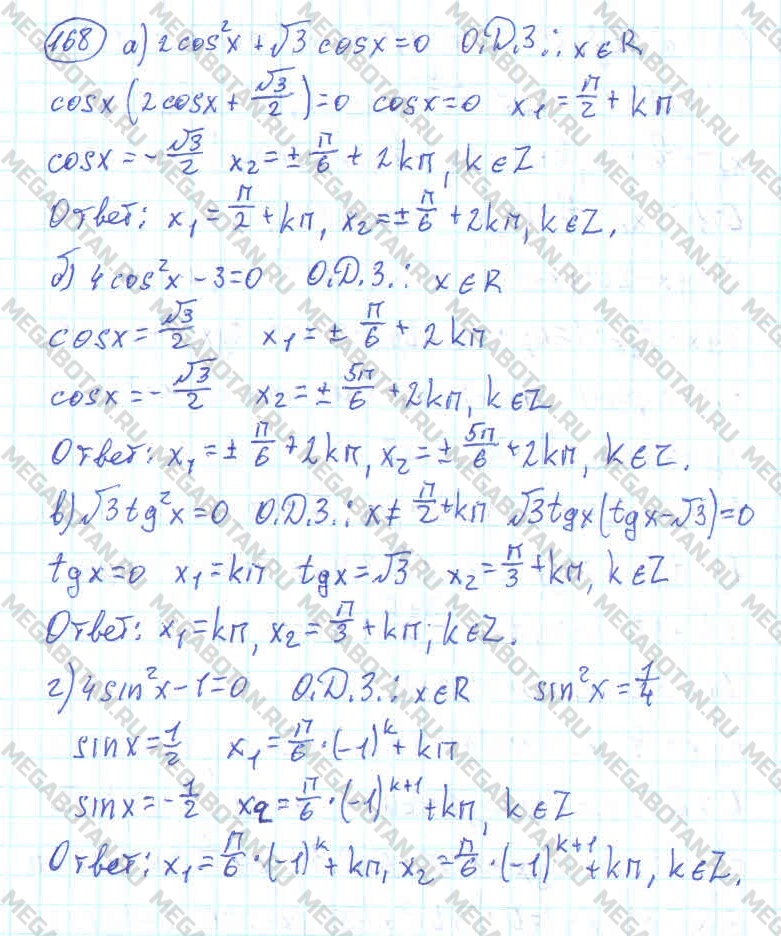 168 а) 2cos²x + √3 cosx = 0 О.Д.З.: x ∈ R
cosx (2cosx + √3/2) = 0 cosx = 0 x₁ = π/2 + kπ
cosx = -√3/2 x₂ = ± π/6 + 2kπ, k ∈ Z
Ответ: x₁ = π/2 + kπ, x₂ = ± π/6 + 2kπ, k ∈ Z.
б) 4cos²x - 3 = 0 О.Д.З.: x ∈ R
cosx = √3/2 x₁ = ± π/6 + 2kπ
cosx = -√3/2 x₂ = ± 5π/6 + 2kπ, k ∈ Z
Ответ: x₁ = ± π/6 + 2kπ, x₂ = ± 5π/6 + 2kπ, k ∈ Z.
в) √3tg²x = 0 О.Д.З.: x ≠ π/2 + kπ √3tgx(tgx - √3) = 0
tgx = 0 x₁ = kπ tgx = √3 x₂ = π/3 + kπ, k ∈ Z
Ответ: x₁ = kπ, x₂ = π/3 + kπ; k ∈ Z.
г) 4sin²x - 1 = 0 О.Д.З.: x ∈ R sin²x = 1/4
sinx = 1/2 x₁ = π/6 · (-1)^k + kπ
sinx = -1/2 x₂ = π/6 · (-1)^(k+1) + kπ, k ∈ Z
Ответ: x₁ = π/6 · (-1)^k + kπ, x₂ = π/6 · (-1)^(k+1) + kπ, k ∈ Z.
MEGABOTAN.RU